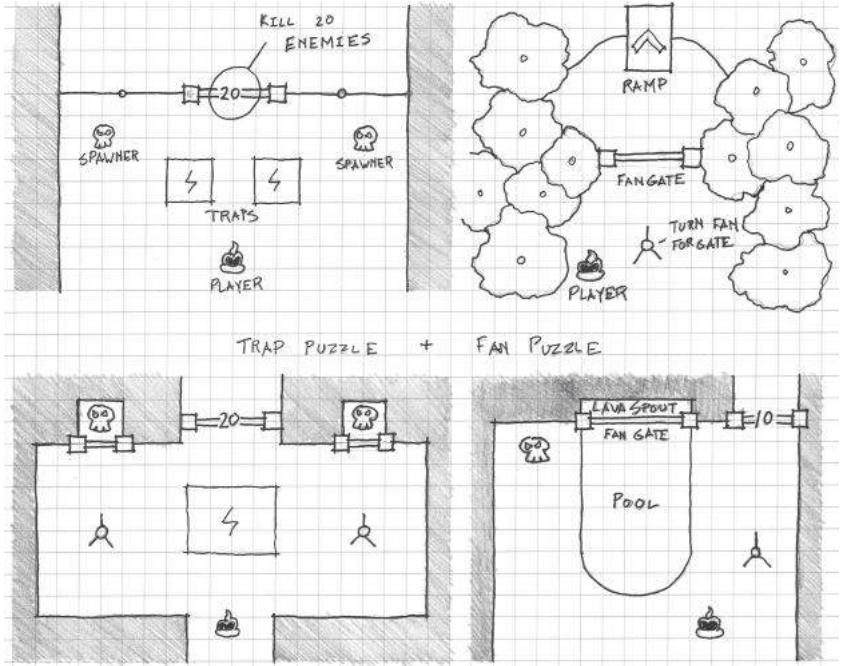 KILL 20
ENEMIES
20
SPAWNER
SPAWNER
TRAPS
PLAYER
RAMP
FAN GATE
TURN FAN
FOR GATE
PLAYER
TRAP PUZZLE + FAN PUZZLE
20
LAVA SPOUT
FAN GATE
10
POOL